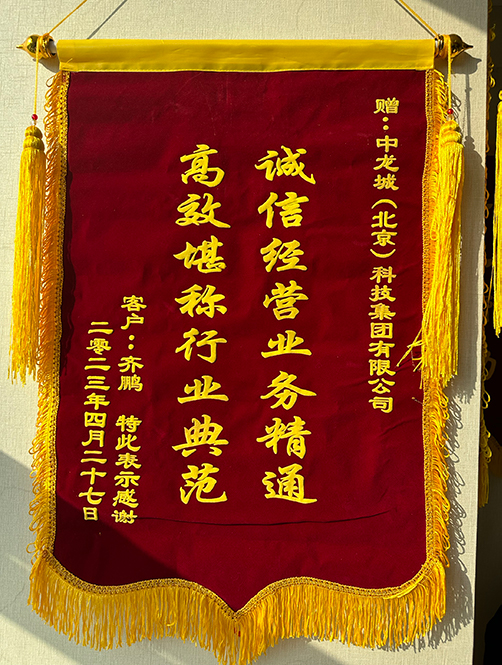 赠：中龙城（北京）科技集团有限公司
诚信经营业务精通
高效堪称行业典范
客户：齐鹏 特此表示感谢
二零二三年四月二十七日